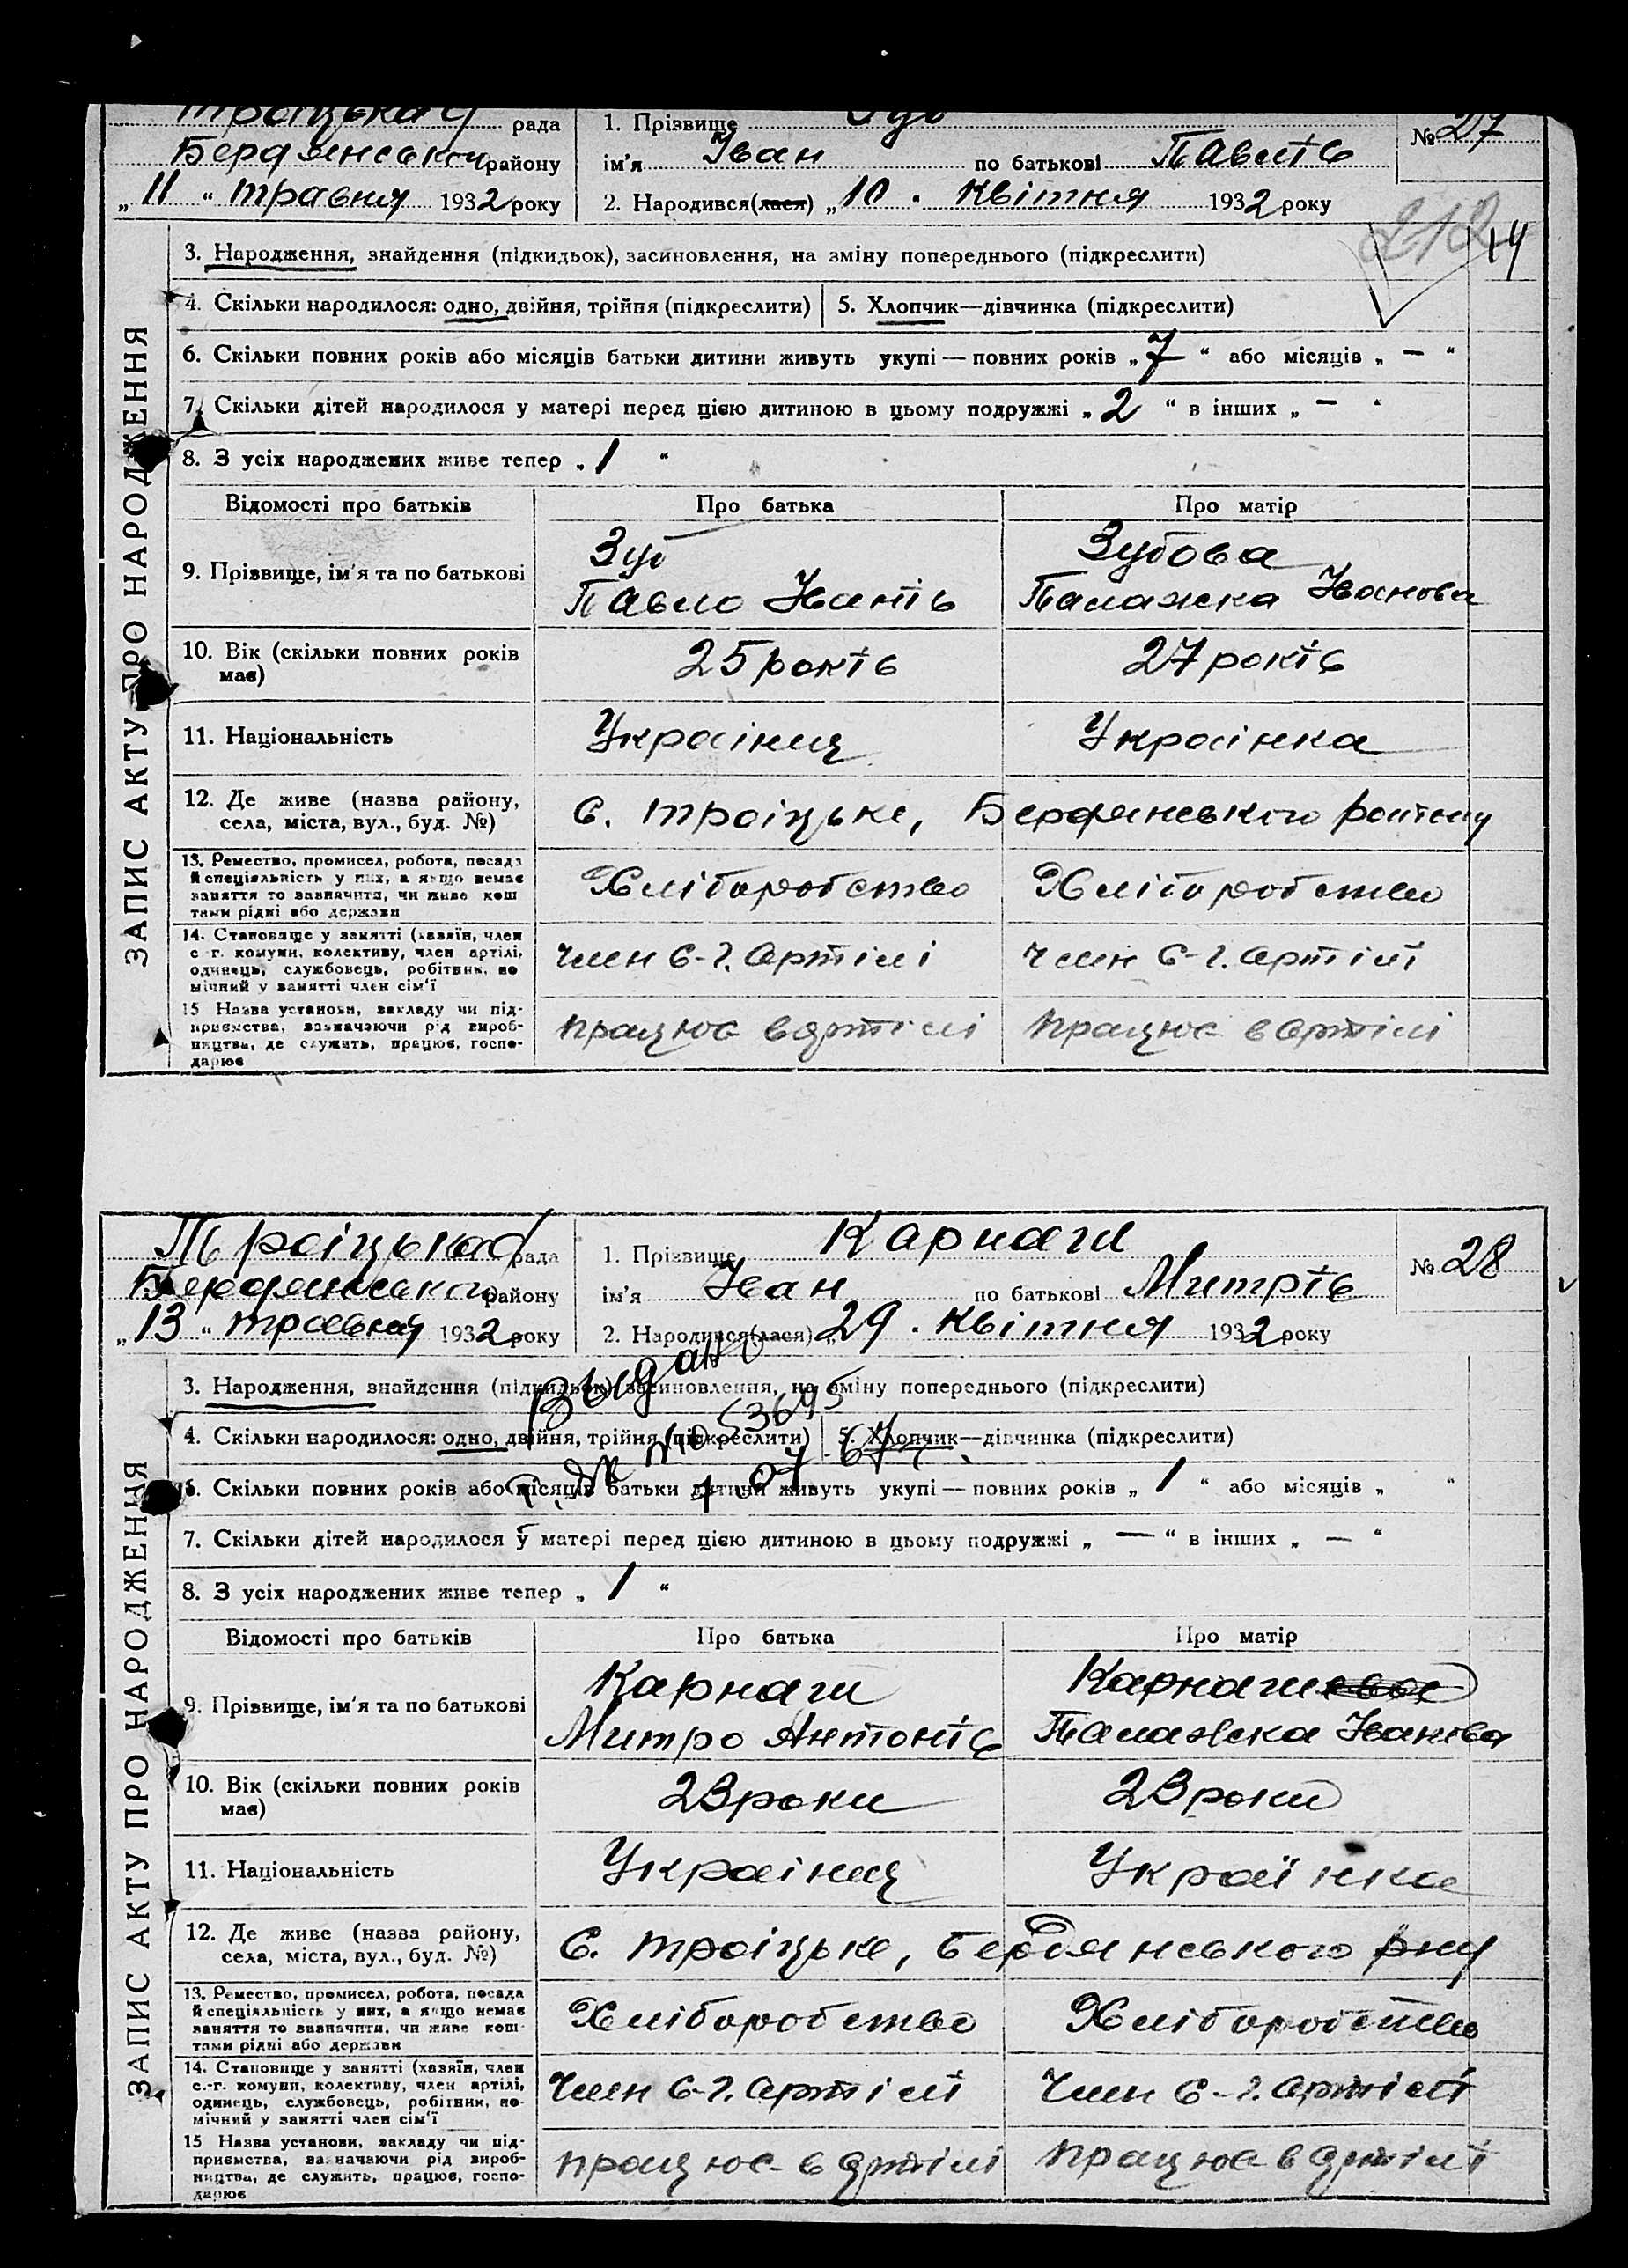 Троіцька рада
1. Прізвище Зуб
№ 27
Бердянськог району
ім'я Іван по батькові Павлів
„11“ травня 1932 року
2. Народився(лася) „10. квітня 1932 року
212 14
3. Народження, знайдення (підкидьок), засиновлення, на зміну попереднього (підкреслити)
4. Скільки народилося: одно, двійня, трійня (підкреслити)
5. Хлопчик—дівчинка (підкреслити)
6. Скільки повних років або місяців батьки дитини живуть укупі — повних років „7“ або місяців „—“
7. Скільки дітей народилося у матері перед цією дитиною в цьому подружжі „2“ в інших „—“
8. З усіх народжених живе тепер „1“
ЗАПИС АКТУ ПРО НАРОДЖЕННЯ
Відомості про батьків
Про батька
Про матір
9. Прізвище, ім'я та по батькові
Зуб
Павло Іванів
Зубова
Палажка Іванова
10. Вік (скільки повних років має)
25 років
27 років
11. Національність
Украінец
Украінка
12. Де живе (назва району, села, міста, вул., буд. №)
С. Троіцьке, Бердянського району
13. Ремество, промисел, робота, посада й спеціяльність у них, а якщо немає заняття то зазначити, чи живе коштами рідні або держави
Хліборобство
Хліборобство
14. Становище у занятті (хазяїн, член с.-г. комуни, колективу, член артілі, одинець, службовець, робітник, помічний у занятті член сім'ї
Член С-г. артілі
Член С-г. артілі
15 Назва установи, закладу чи підприємства, зазначаючи рід виробництва, де служить, працює, господарює
працює в артілі
працює в артілі
Троіцька рада
1. Прізвище Карнаш
№ 28
Бердянського району
ім'я Іван по батькові Митрів
„13“ травня 1932 року
2. Народився(лася) „29. квітня 1932 року
Выдано
3. Народження, знайдення (підкидьок), засиновлення, на зміну попереднього (підкреслити)
4. Скільки народилося: одно, двійня, трійня (підкреслити)
5. Хлопчик—дівчинка (підкреслити)
6. Скільки повних років або місяців батьки дитини живуть укупі — повних років „1“ або місяців „ “
7. Скільки дітей народилося у матері перед цією дитиною в цьому подружжі „—“ в інших „—“
8. З усіх народжених живе тепер „1“
ЗАПИС АКТУ ПРО НАРОДЖЕННЯ
Відомості про батьків
Про батька
Про матір
9. Прізвище, ім'я та по батькові
Карнаш
Митро Антонів
Карнашева
Палажка Іванова
10. Вік (скільки повних років має)
23 роки
23 роки
11. Національність
Украінец
Україінка
12. Де живе (назва району, села, міста, вул., буд. №)
С. Троіцьке, Бердянського рну
13. Ремество, промисел, робота, посада й спеціяльність у них, а якщо немає заняття то зазначити, чи живе коштами рідні або держави
Хліборобство
Хліборобство
14. Становище у занятті (хазяїн, член с.-г. комуни, колективу, член артілі, одинець, службовець, робітник, помічний у занятті член сім'ї
Член С-г. артілі
Член С-г. артілі
15 Назва установи, закладу чи підприємства, зазначаючи рід виробництва, де служить, працює, господарює
працює в артілі
працює в артілі